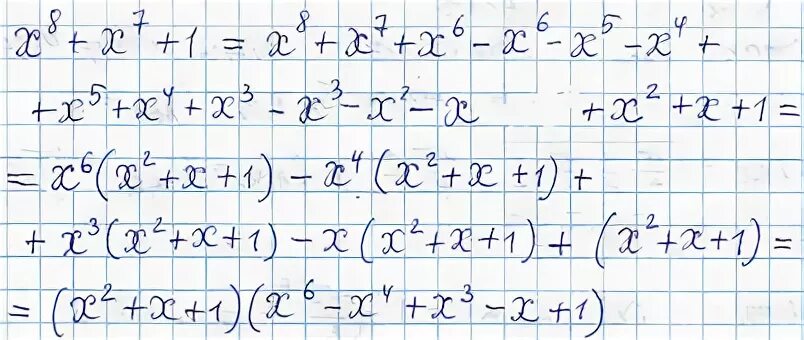 x⁸ + x⁷ + 1 = x⁸ + x⁷ + x⁶ - x⁶ - x⁵ - x⁴ +
+ x⁵ + x⁴ + x³ - x³ - x² - x + x² + x + 1 =
= x⁶(x² + x + 1) - x⁴(x² + x + 1) +
+ x³(x² + x + 1) - x(x² + x + 1) + (x² + x + 1) =
= (x² + x + 1)(x⁶ - x⁴ + x³ - x + 1)